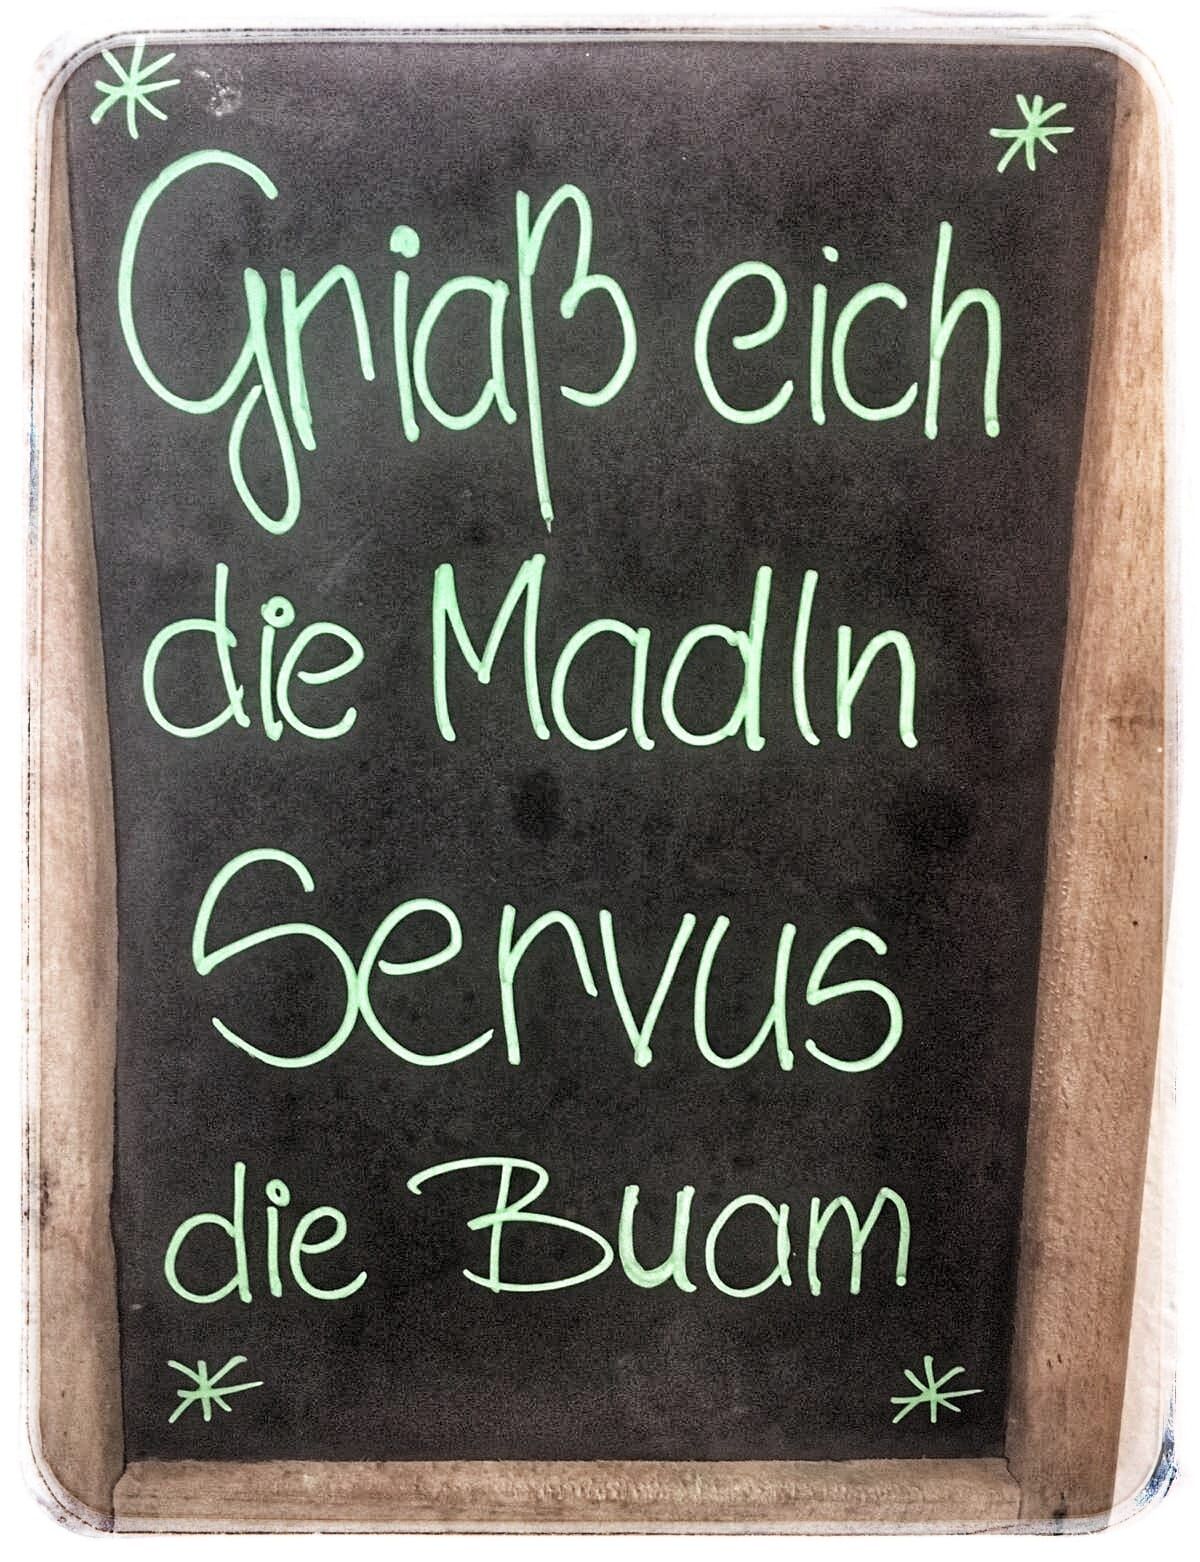 Griaß eich
die Madln
Servus
die Buam